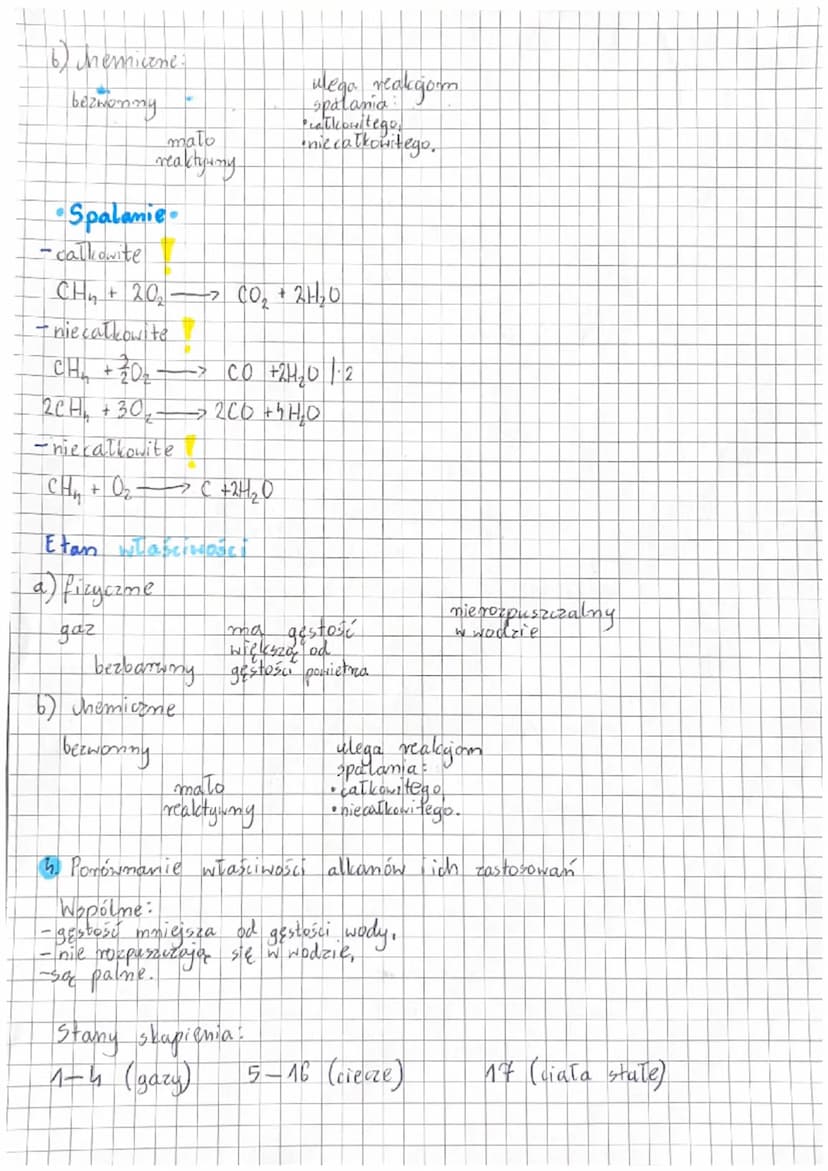 b) chemiczne:
bezwonny
mało
reaktywny
ulega reakcjom
spalania:
•całkowitego,
•niecałkowitego.
•Spalanie•
-całkowite !
CH₄ + 2O₂ ⟶ CO₂ + 2H₂O
-niecałkowite !
CH₄ + 3/2O₂ ⟶ CO +2H₂O |·2
2CH₄ + 3O₂ ⟶ 2CO + 4H₂O
-niecałkowite !
CH₄ + O₂ ⟶ C +2H₂O
Etan właściwości
a) fizyczne
gaz
bezbarwny
ma gęstość
większą od
gęstości powietrza
nierozpuszczalny
w wodzie
b) chemiczne
bezwonny
mało
reaktywny
ulega reakcjom
spalania:
•całkowitego,
•niecałkowitego.
4. Porównanie właściwości alkanów i ich zastosowań
Wspólne:
-gęstość mniejsza od gęstości wody,
-nie rozpuszczają się w wodzie,
-są palne.
Stany skupienia:
1-4 (gazy) 5-16 (ciecze) 17 (ciała stałe)